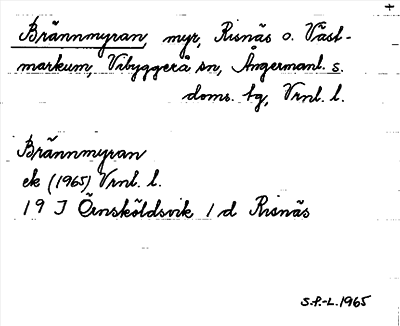 Brännmyran, myr, Risnäs o. Väst-
markum, Vibyggerå sn, Ångermanl. s.
doms. tg, Vrnl. l.
Brännmyran
ek (1965) Vrnl. l.
19 J Örnsköldsvik 1 d Risnäs
S.P.-L. 1965